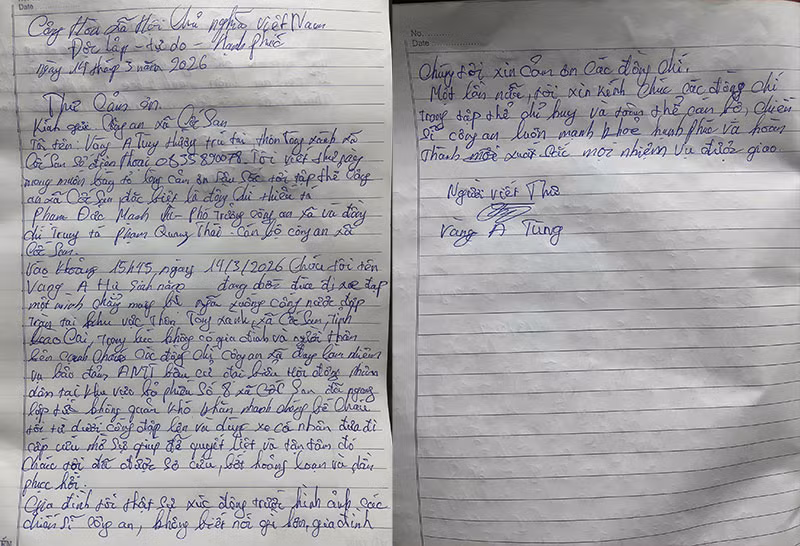 Cộng Hòa Xã Hội Chủ nghĩa Việt Nam
Độc lập - tự do - Hạnh phúc
ngày 14 tháng 3 năm 2026
Thư Cảm ơn.
Kính gửi: Công an xã Cốc San
Tôi tên: Vàng A Tung thường trú tại thôn Tòng xành xã
Cốc San Số điện thoại Tôi viết thư này
mong muốn bày tỏ lòng cảm ơn sâu sắc tới tập thể Công
an xã Cốc San đặc biệt là đồng chí thiếu tá
Phạm Đức Mạnh - Phó trưởng công an xã và đồng
chí Trung tá Phạm Quang Thái - Cán bộ công an xã
Cốc San.
Vào khoảng 15h45, ngày 14/3/2026 Cháu tôi tên
Vàng A Hử Sinh năm đang được đưa đi xe đạp
một mình chẳng may bị ngã xuống cống nước đập
tràn tại khu vực Thôn Tòng xành, xã Cốc San, tỉnh
Lao Cai, trong lúc không có gia đình và người thân
bên cạnh Cháu. Các đồng chí công an xã đang làm nhiệm
vụ bảo đảm ANTT bầu cử đại biểu Hội đồng nhân
dân tại khu vực bỏ phiếu Số 8 xã Cốc San đã ngay
lập tức không quản khó khăn nhanh chóng bế cháu
tôi từ dưới cống đập lên và dùng xe cá nhân đưa đi
cấp cứu nhờ sự giúp đỡ quyết liệt và tận tâm đó
Cháu tôi đã được sơ cứu, bớt hoảng loạn và dần
phục hồi.
Gia đình tôi thật sự xúc động trước hình ảnh các
chiến sĩ công an, không biết nói gì hơn, gia đình
No.
Date
Chúng tôi xin cảm ơn các đồng chí.
Một lần nữa, tôi xin kính chúc các đồng chí
trong tập thể chỉ huy và toàn thể cán bộ, chiến
sĩ công an luôn mạnh khỏe hạnh phúc và hoàn
thành xuất sắc mọi nhiệm vụ được giao.
Người viết Thư
Vàng A Tung